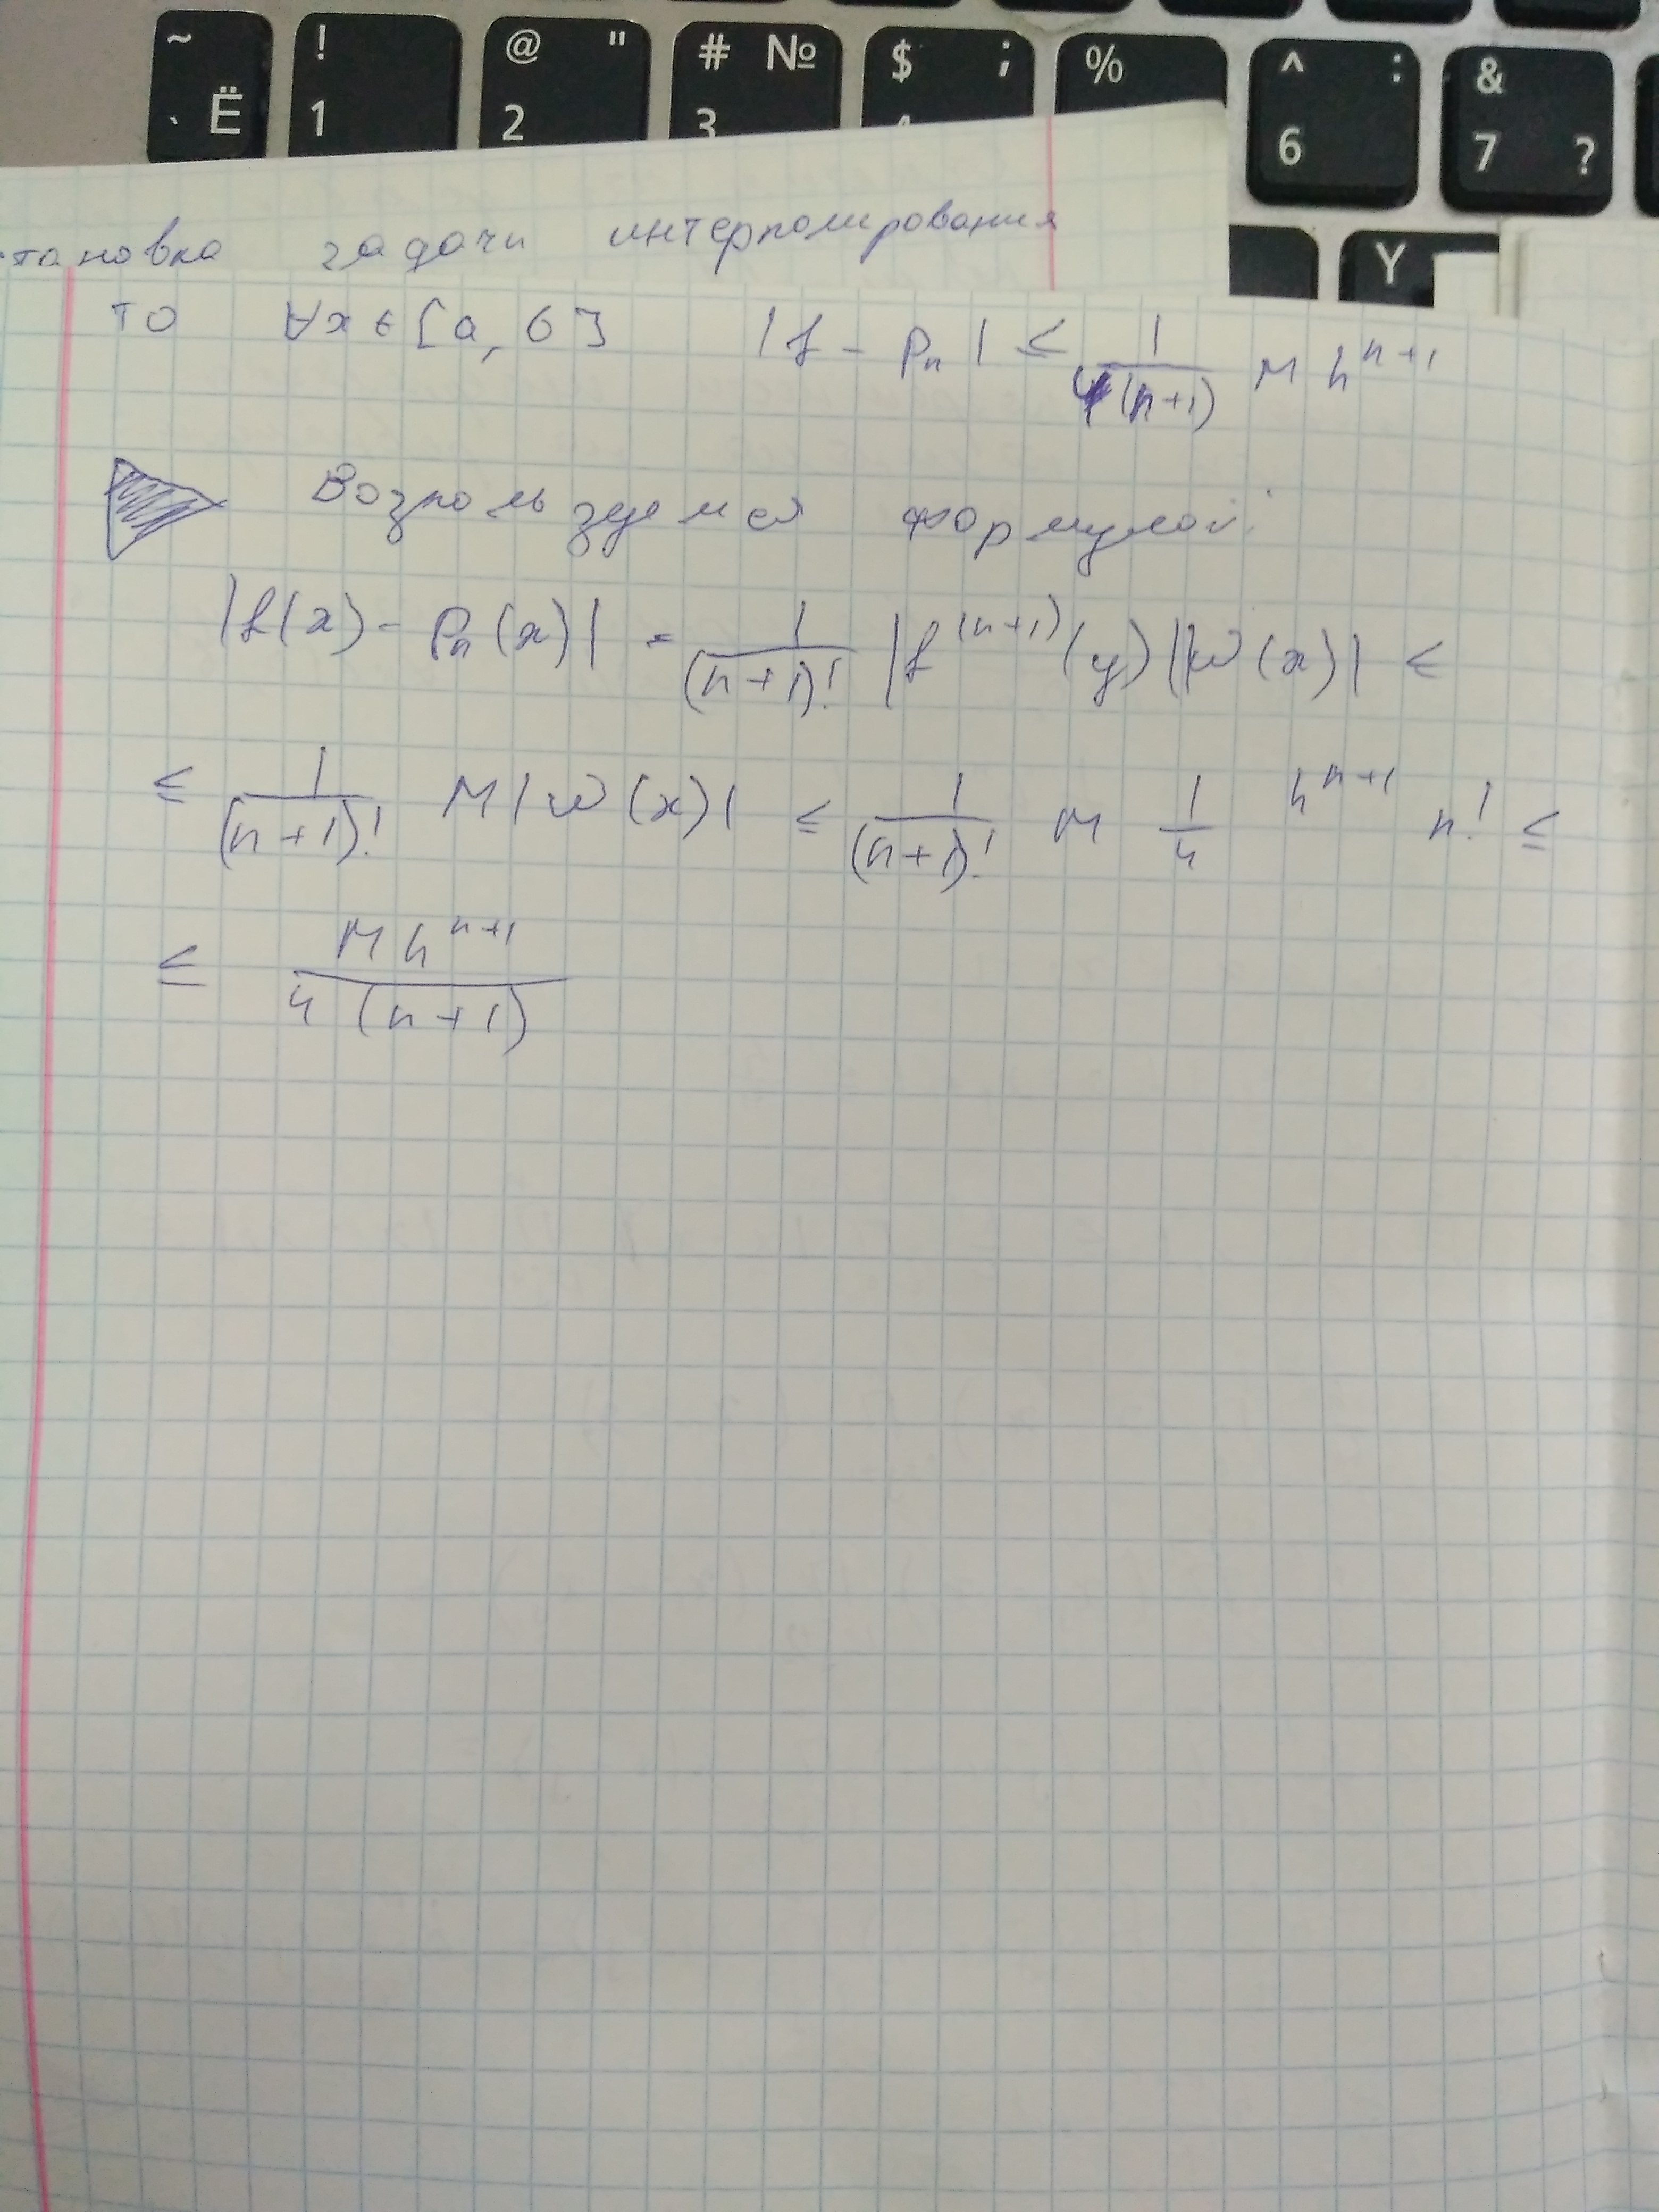 ~ Ё ` ! 1 @ " 2 # № 3 $ ; 4 % ^ : 6 & 7 ?
Y
тановка задачи интерполирования
то ∀x ∈ [a, b] |f - Pn| ≤ 1/(4(n+1)) M h^(n+1)
Возпользуемся формулой:
|f(x) - Pn(x)| = 1/(n+1)! |f^(n+1)(y)||ω(x)| ≤
≤ 1/(n+1)! M|ω(x)| ≤ 1/(n+1)! M 1/4 h^(n+1) n! ≤
≤ M h^(n+1) / 4(n+1)